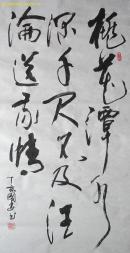 桃花潭水
深千尺不及汪
淪送我情